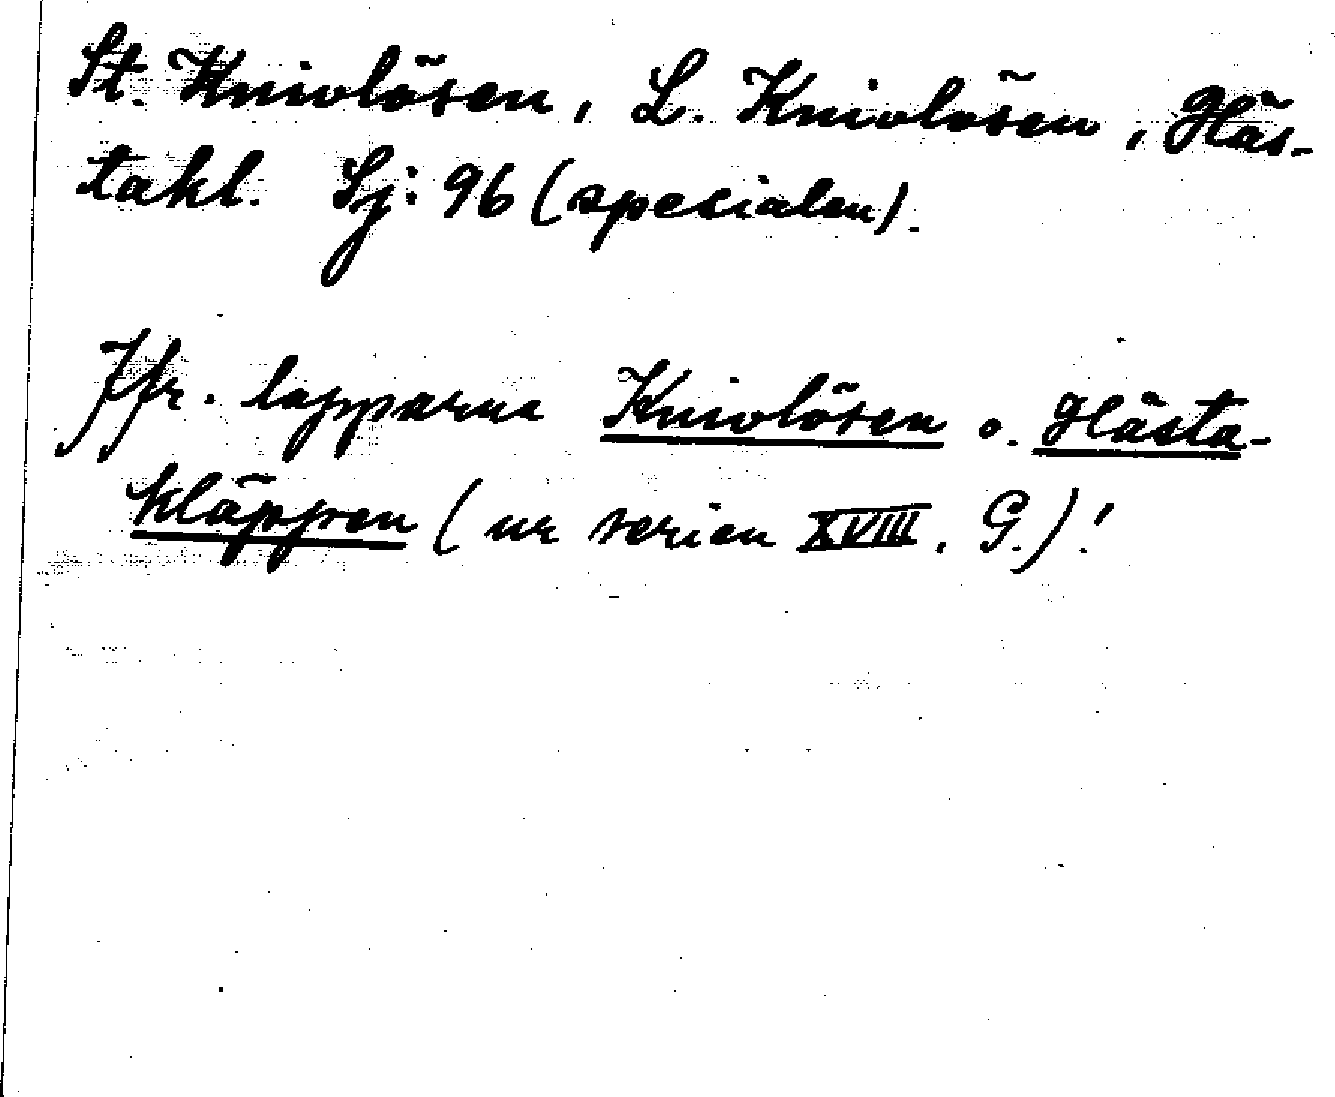 St. Knivlösen, L. Knivlösen, Häs-
takl. Sj: 96 (specialen).
Jfr. lapparna Knivlösen o. Hästa-
kläppen (ur serien XVIII, G.)!